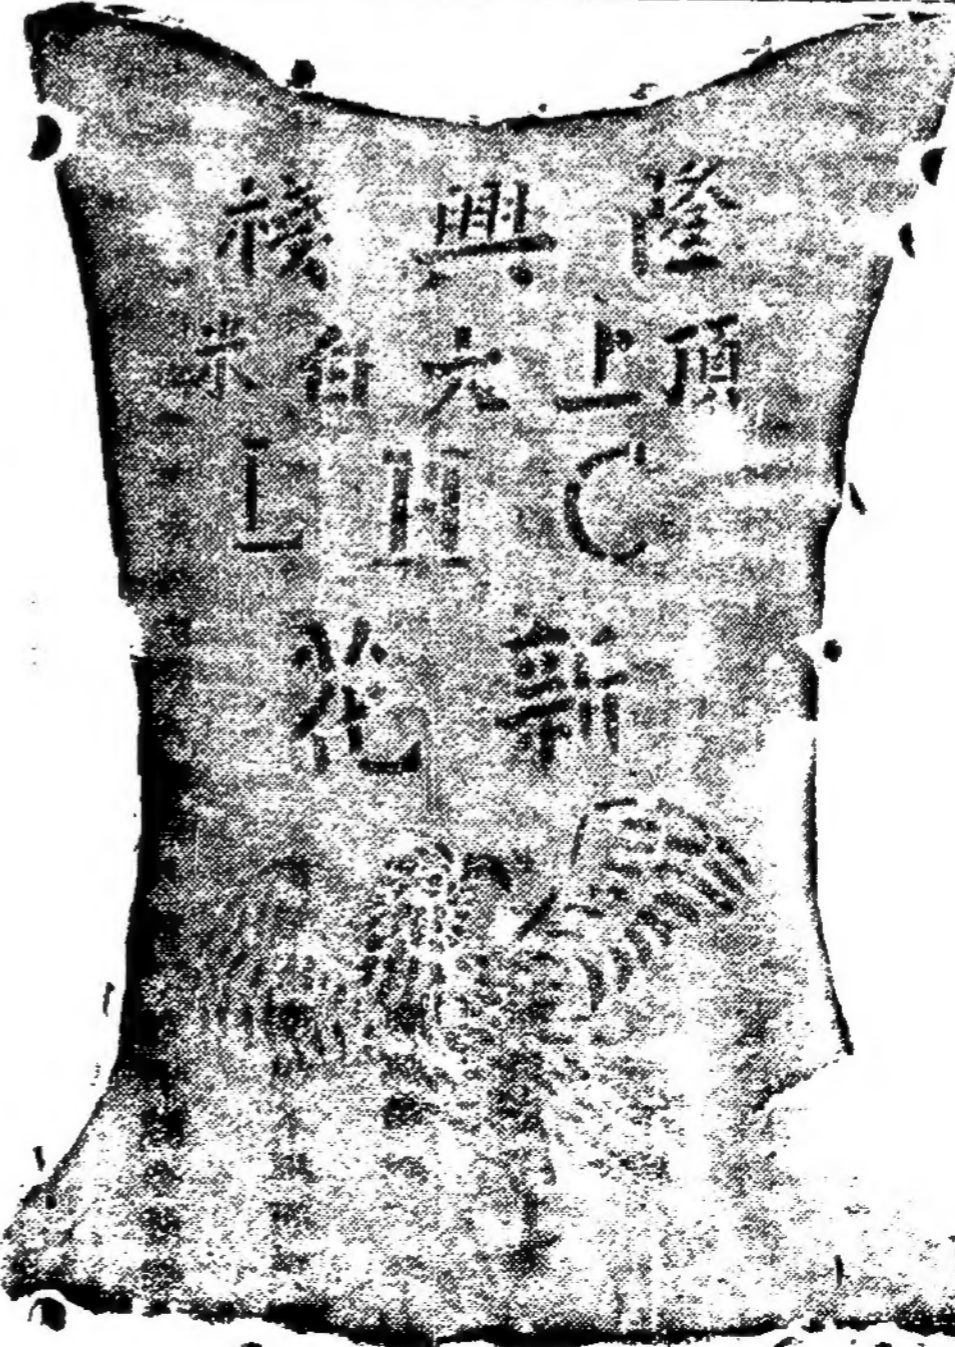 隆興棧
頂上大白米
L H C
新